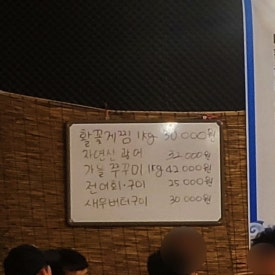 활꽃게찜 1kg 30.000원
자연산 광어 32.000원
가을 쭈꾸미 1kg 42.000원
전어회·구이 25.000원
새우버터구이 30.000원